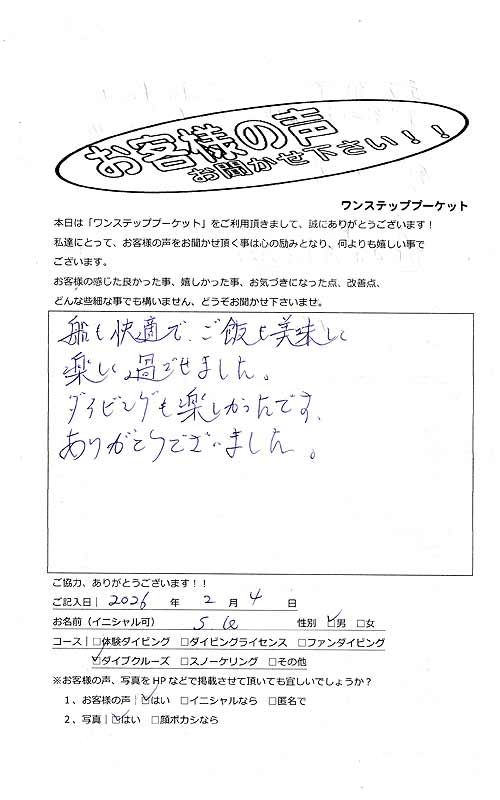 お客様の声
お聞かせ下さい！！
ワンステッププーケット
本日は「ワンステッププーケット」をご利用頂きまして、誠にありがとうございます！
私達にとって、お客様の声をお聞かせ頂く事は心の励みとなり、何よりも嬉しい事で
ございます。
お客様の感じた良かった事、嬉しかった事、お気づきになった点、改善点、
どんな些細な事でも構いません、どうぞお聞かせ下さいませ。
船も快適で、ご飯も美味しく
楽しく過ごせました。
ダイビングも楽しかったです、
ありがとうございました。
ご協力、ありがとうございます！！
ご記入日｜ 2026 年 2 月 4 日
お名前（イニシャル可） S. 性別 ☑男 □女
コース｜ □体験ダイビング □ダイビングライセンス □ファンダイビング
☑ダイブクルーズ □スノーケリング □その他
※お客様の声、写真をHPなどで掲載させて頂いても宜しいでしょうか？
1、お客様の声｜☑はい □イニシャルなら □匿名で
2、写真｜☑はい □顔ボカシなら